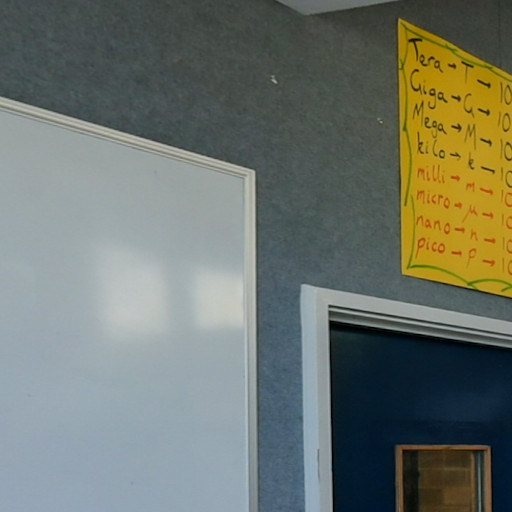 Tera → T → 10
Giga → G → 10
Mega → M → 10
kilo → k → 10
milli → m → 10
micro → μ → 10
nano → n → 10
pico → p → 10